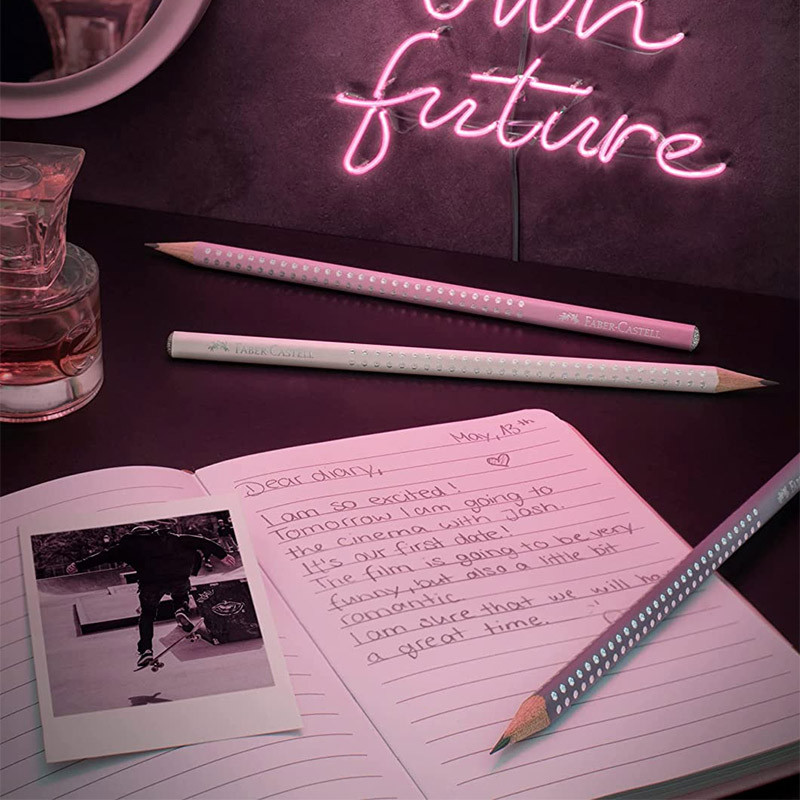 own
future
FABER-CASTELL
FABER-CASTELL
May, 13th
Dear diary,
I am so excited!
Tomorrow I am going to
the cinema with Josh.
It's our first date!
The film is going to be very
funny, but also a little bit
romantic.
I am sure that we will
a great time.